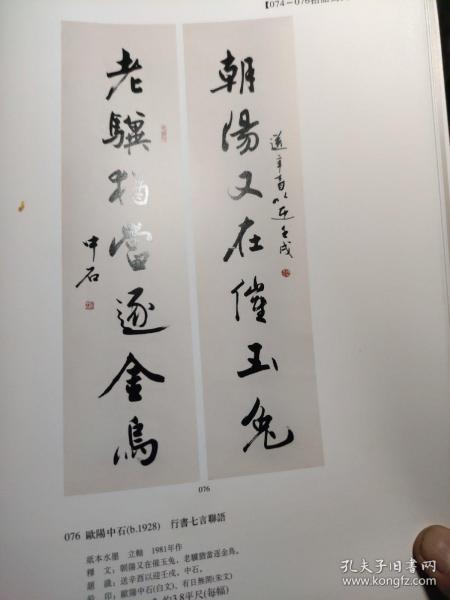 【074－076拍品
朝陽又在催玉兔
送辛酉以迎壬戌
老驥猶當逐金烏
中石
076
076 歐陽中石(b.1928) 行書七言聯語
紙本水墨 立軸 1981年作
釋 文：朝陽又在催玉兔，老驥猶當逐金烏。
題 識：送辛酉以迎壬戌。中石。
印：歐陽中石(白文)、(朱文)
約3.8平尺(每幅)
孔夫子旧书网